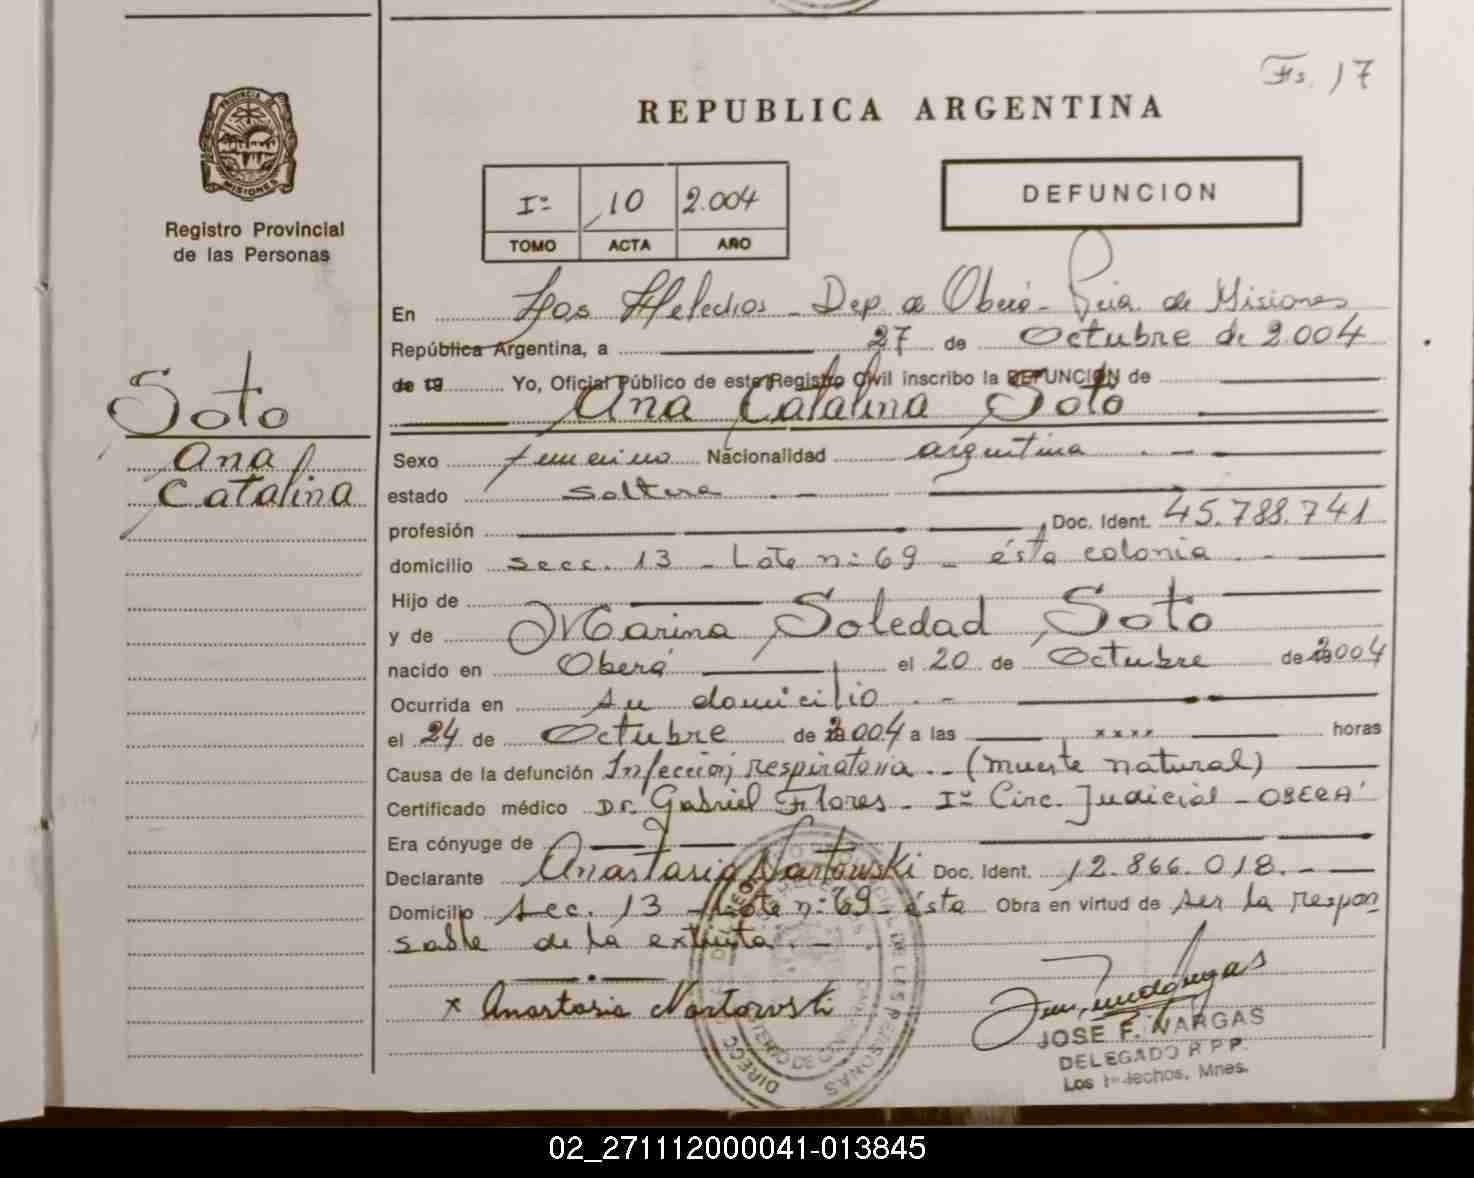 Fs. 17
REPUBLICA ARGENTINA
PROVINCIA DE
MISIONES
Registro Provincial
de las Personas
Iº 10 2.004
TOMO ACTA AÑO
DEFUNCION
En Los Helechos - Dep. de Oberá - Pcia. de Misiones
República Argentina, a 27 de Octubre de 2.004
de 19 Yo, Oficial Público de este Registro Civil inscribo la DEFUNCION de
Ana Catalina Soto
Soto
Ana
Catalina
Sexo femenino Nacionalidad argentina . -
estado soltera . -
profesión Doc. Ident. 45.788.741
domicilio secc. 13 - Lote n: 69 - ésta colonia . -
Hijo de
y de Marina Soledad Soto
nacido en Oberá el 20 de Octubre de 2004
Ocurrida en su domicilio . -
el 24 de Octubre de 2004 a las xxxx horas
Causa de la defunción Infección respiratoria .- (muerte natural)
Certificado médico Dr. Gabriel Flores - Iº Circ. Judicial - OBERA'
Era cónyuge de
Declarante Anastasia Nartowski Doc. Ident. 12.866.018. -
Domicilio Sec. 13 - Lote n: 69 - ésta Obra en virtud de ser la respon
sable de la extinta . -
x Anastasia Nartowski
JOSE F. VARGAS
DELEGADO R P P.
Los Helechos, Mnes.
02_271112000041-013845